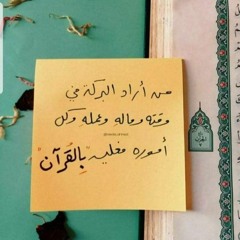 من أراد البركة في
وقته وماله وعمله وكل
أموره فعليه بِالقُرآن